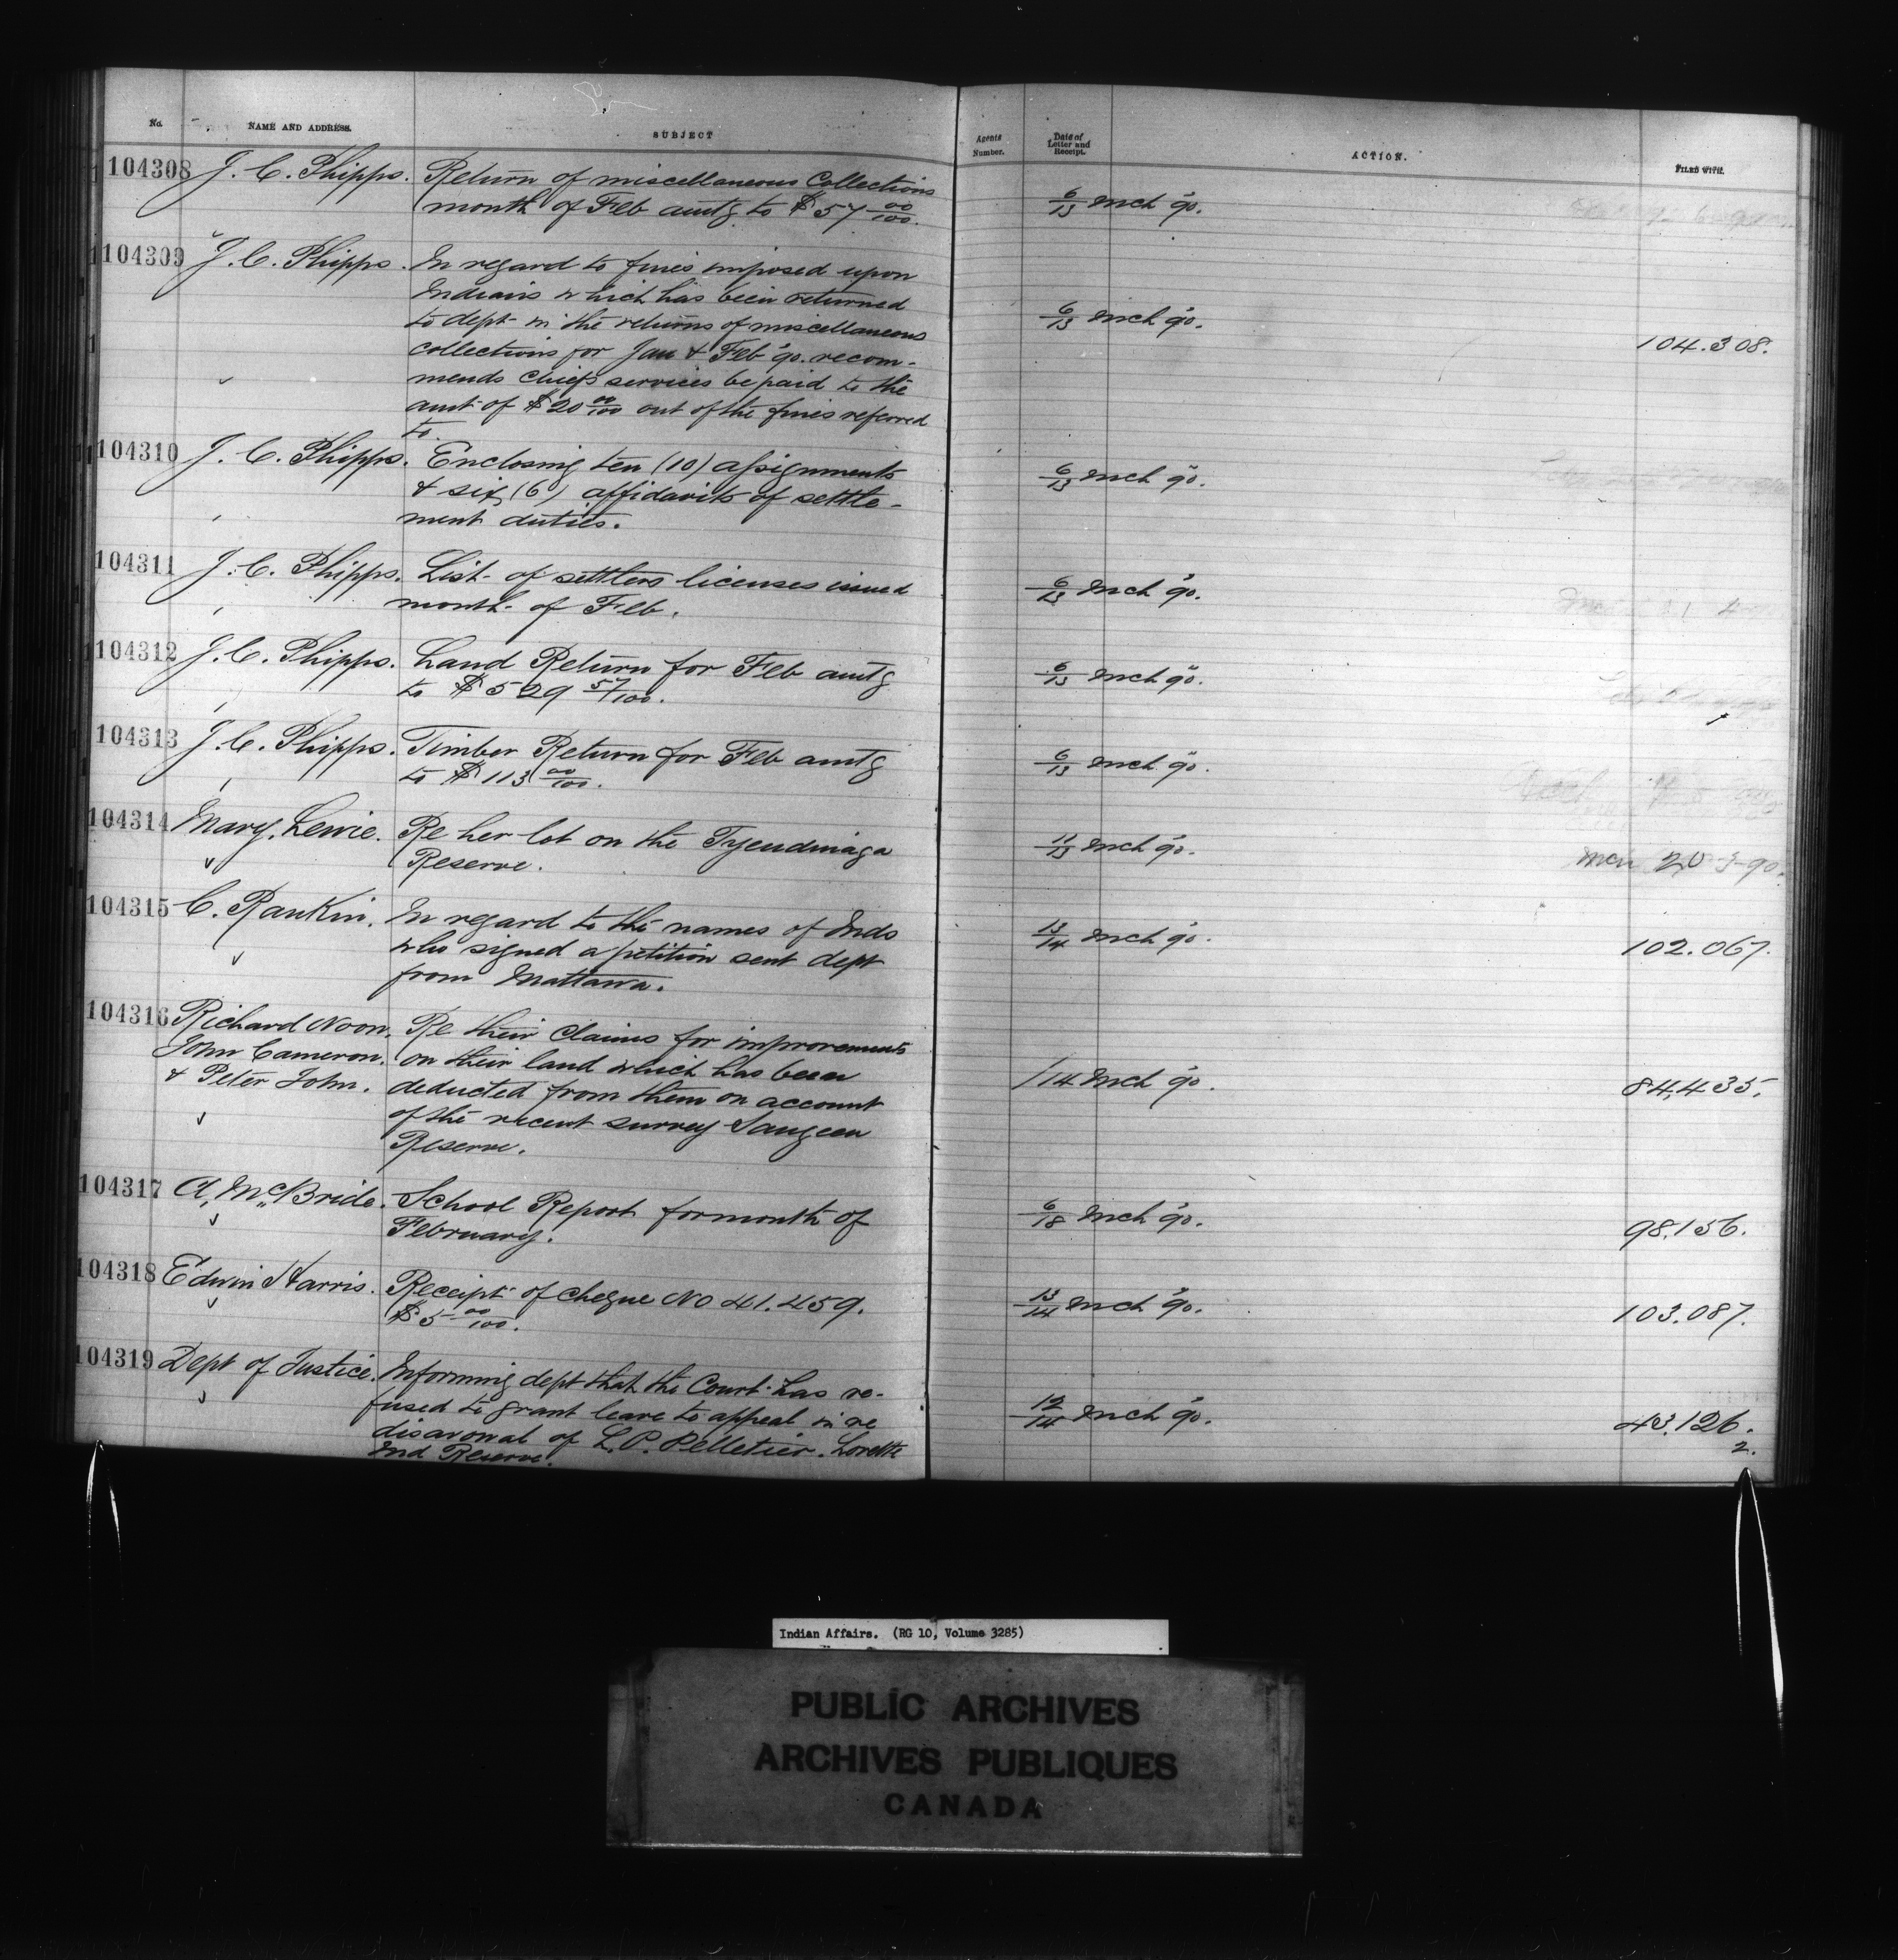 No. NAME AND ADDRESS. SUBJECT Agents Number. Date of Letter and Receipt. ACTION. FILED WITH.
104308 J. C. Phipps. Return of miscellaneous Collections 6/13 Mch 90.
month of Feb amtg to $57 00/100.
104309 J. C. Phipps. In regard to fines imposed upon 6/13 Mch 90. 104.308.
Indians which has been returned
to dept in the returns of miscellaneous
collections for Jan & Feb 90. recom-
mends Chiefs services be paid to the
amt of $20 00/100 out of the fines referred
to.
104310 J. C. Phipps. Enclosing ten (10) assignments 6/13 Mch 90.
& six (6) affidavits of settle-
ment duties.
104311 J. C. Phipps. List of settlers licenses issued 6/13 Mch 90.
month of Feb.
104312 J. C. Phipps. Land Return for Feb amtg 6/13 Mch 90.
to $529 57/100.
104313 J. C. Phipps. Timber Return for Feb amtg 6/13 Mch 90.
to $113 00/100.
104314 Mary Lewie. Re her lot on the Tyendinaga 11/13 Mch 90. 20-3-90.
Reserve.
104315 C. Rankin. In regard to the names of Inds 13/14 Mch 90. 102.067.
who signed a petition sent dept
from Mattawa.
104316 Richard Noon, Re their claims for improvements /14 Mch 90. 84,435.
John Cameron, on their land which has been
& Peter John. deducted from them on account
of the recent survey Saugeen
Reserve.
104317 A. McBride. School Report for month of 6/18 Mch 90. 98.156.
February.
104318 Edwin Harris. Receipt of cheque No 41.459. 13/14 Mch 90. 103.087.
$5 00/100.
104319 Dept of Justice. Informing dept that the Court has re- 12/14 Mch 90. 43.126.
fused to grant leave to appeal in re 2.
disavowal of L. P. Pelletier. Lorette
Ind Reserve.
Indian Affairs. (RG 10, Volume 3285)
PUBLIC ARCHIVES
ARCHIVES PUBLIQUES
CANADA